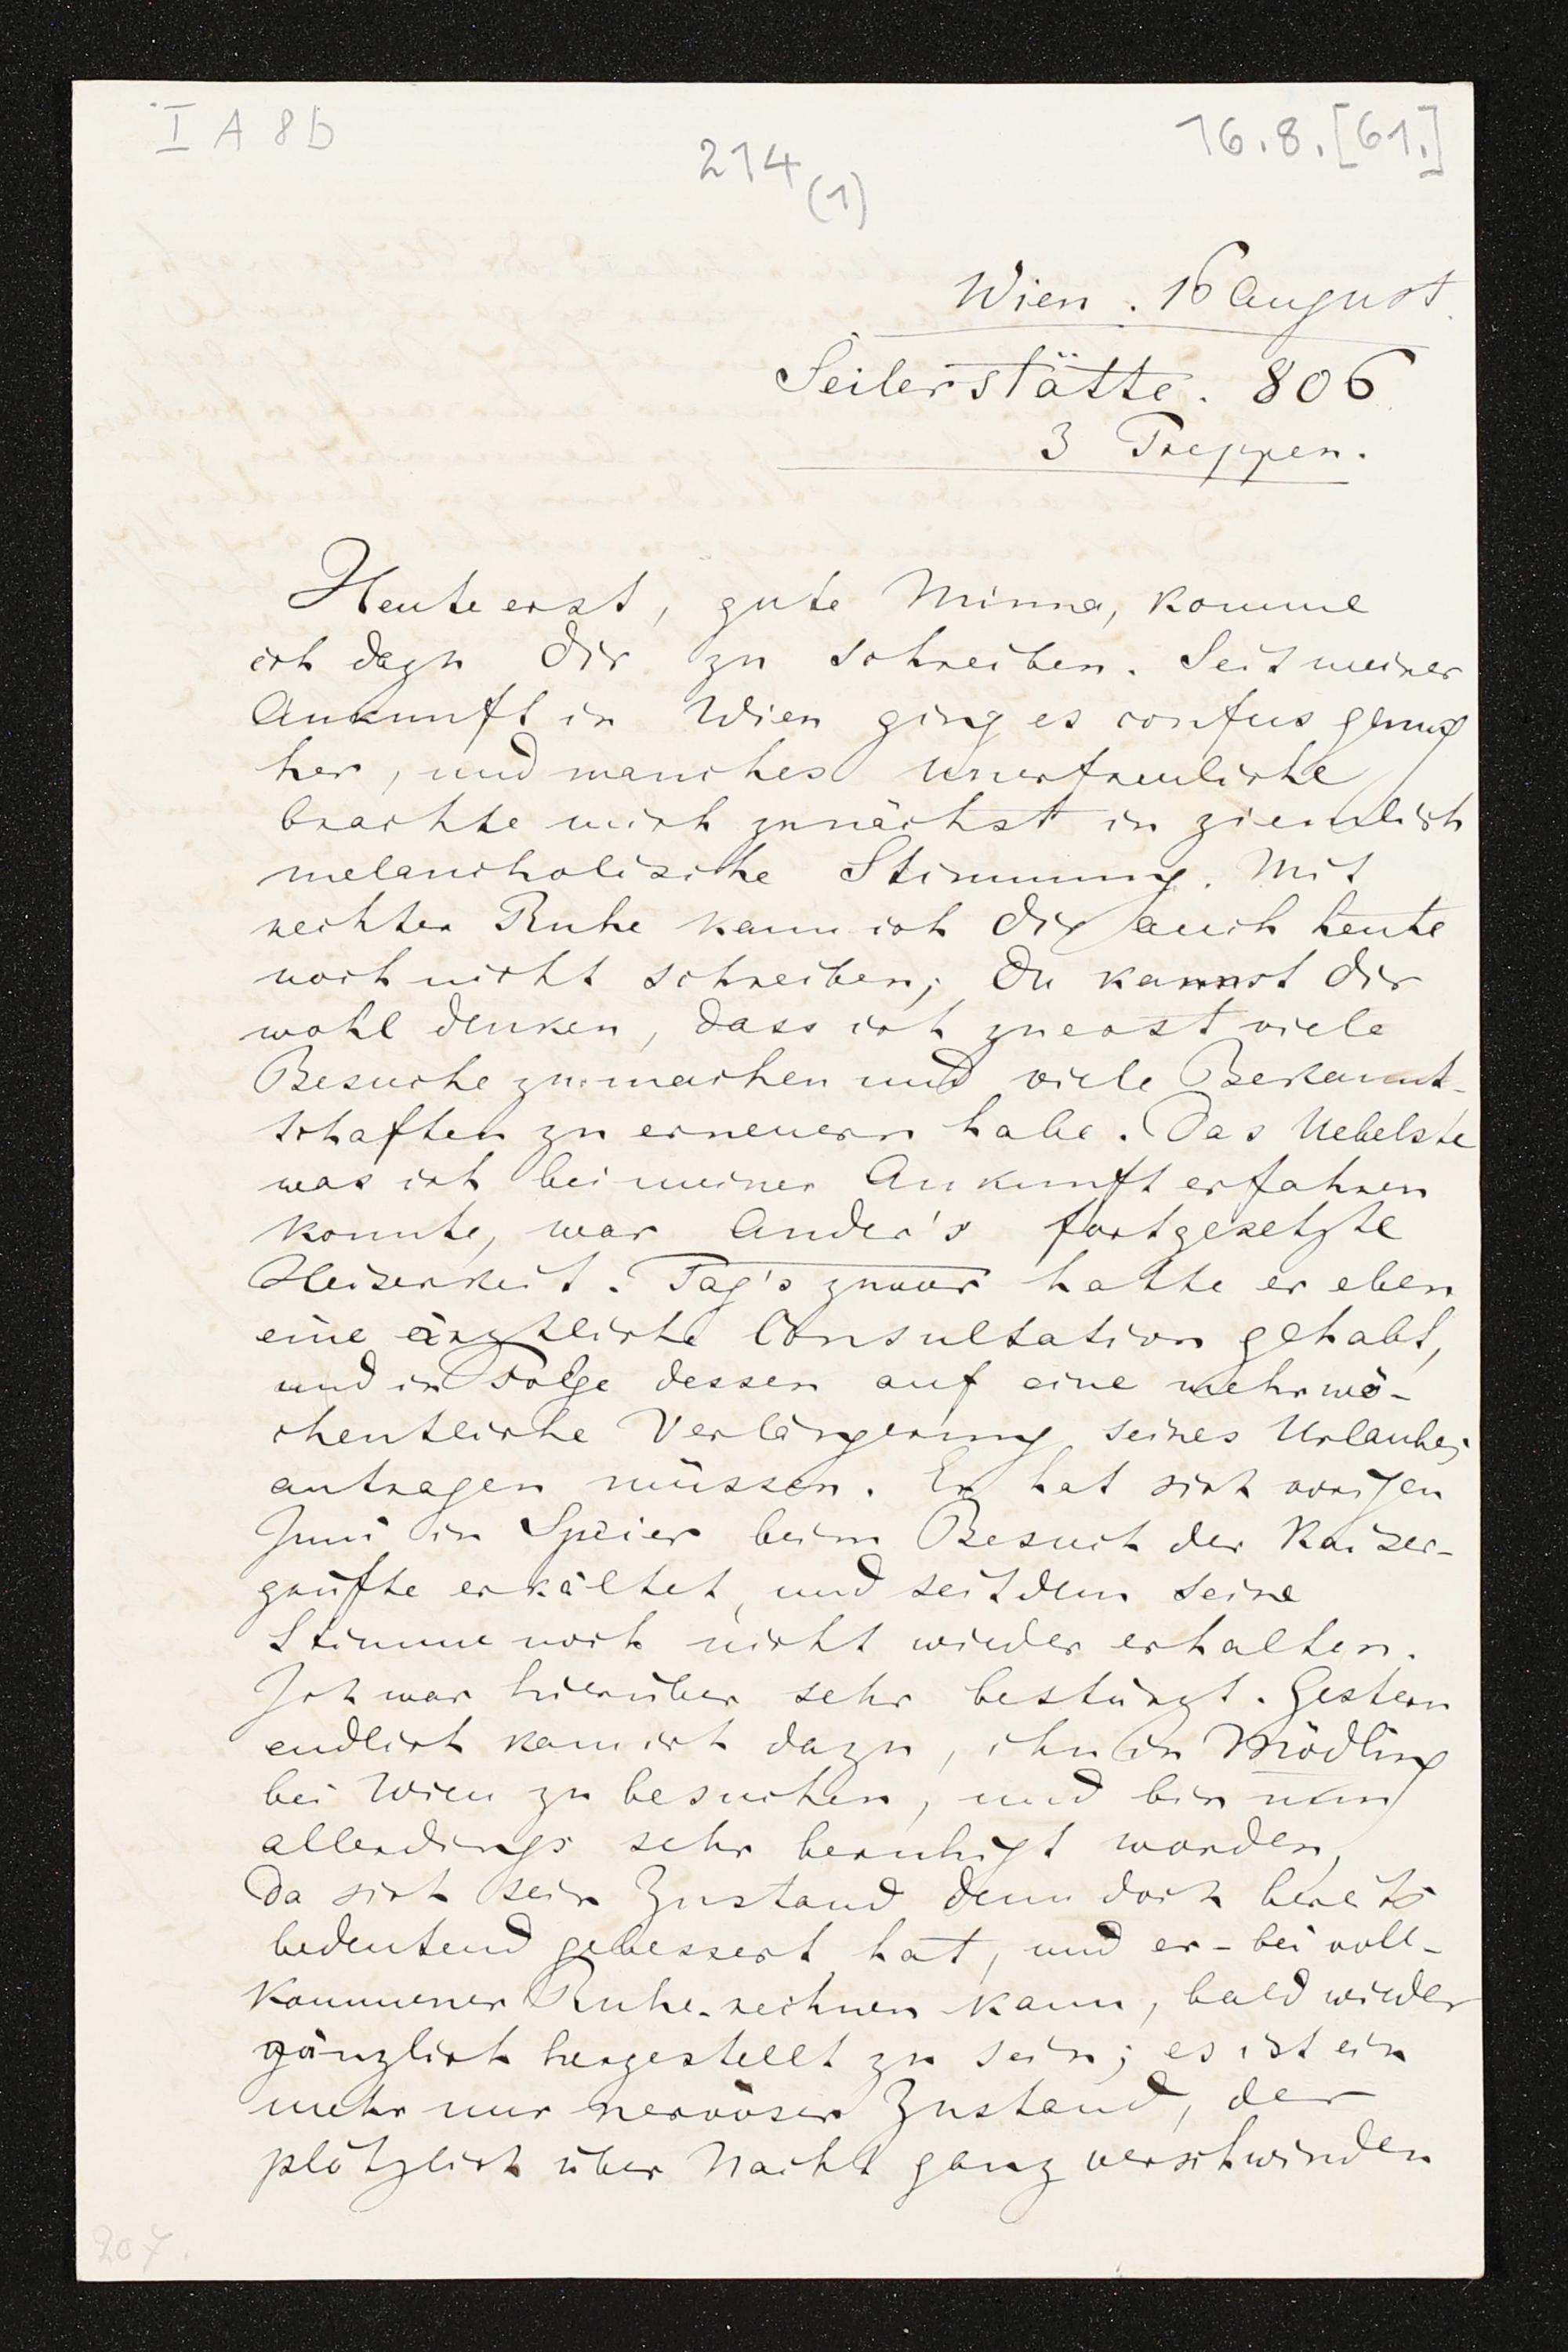 I A 8b
16.8.[61.]
214
(1)
Wien . 16 August.
Seilerstätte. 806
3 Treppen.
Heute erst, gute Minna, komme
ich dazu Dir zu schreiben. Seit meiner
Ankunft in Wien ging es confus genug
her, und manches Unerfreuliche
brachte mich zunächst in ziemlich
melancholische Stimmung. Mit
rechter Ruhe kann ich Dir auch heute
noch nicht schreiben; Du kannst Dir
wohl denken, dass ich zuerst viele
Besuche zu machen und viele Bekannt-
schaften zu erneuern habe. Das Uebelste
was ich bei meiner Ankunft erfahren
konnte, war Ander's fortgesetzte
Heiserkeit. Tag's zuvor hatte er eben
eine ärztliche Consultation gehabt,
und in Folge dessen auf eine mehrwö-
chentliche Verlängerung seines Urlaubes
antragen müssen. Er hat sich vorigen
Juni in Speier beim Besuch der Kaiser-
grüfte erkältet, und seitdem seine
Stimme noch nicht wieder erhalten.
Ich war hierüber sehr bestürzt. Gestern
endlich kam ich dazu, ihn in Mödling
bei Wien zu besuchen, und bin nun
allerdings sehr beruhigt worden,
da sich sein Zustand denn doch bereits
bedeutend gebessert hat, und er - bei voll-
kommener Ruhe - rechnen kann, bald wieder
gänzlich hergestellt zu sein; es ist ein
mehr nur nervöser Zustand, der
plötzlich über Nacht ganz verschwinden
207.